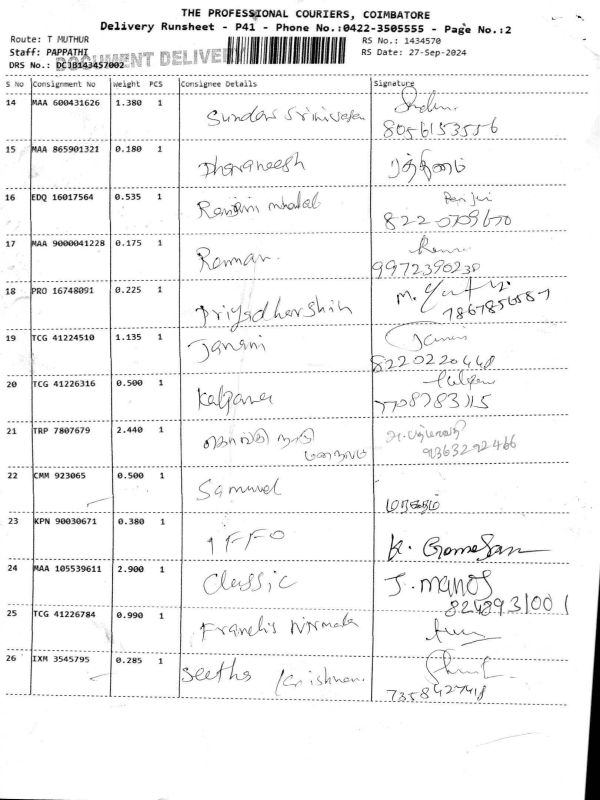 THE PROFESSIONAL COURIERS, COIMBATORE
Delivery Runsheet - P41 - Phone No.:0422-3505555 - Page No.:2
Route: T MUTHUR
RS No.: 1434570
Staff: PAPPATHI
RS Date: 27-Sep-2024
DOCUMENT DELIVERY
DRS No.: DCJB143457002
S No Consignment No Weight PCS Consignee Details Signature
14 MAA 600431626 1.380 1 Sundar Srinivasan
8056153556
15 MAA 865901321 0.180 1 Dharaneesh ரத்தினம்
16 EDQ 16017564 0.535 1 Ranjini
8220709670
17 MAA 9000041228 0.175 1 Raman
9972390238
18 PRO 16748091 0.225 1 Priyadharshin
7867856587
19 TCG 41224510 1.135 1 Janani
8220220448
20 TCG 41226316 0.500 1 Kalpana
7708783115
21 TRP 7807679 2.440 1
9363292466
22 CMM 923065 0.500 1 Samuvel
23 KPN 90030671 0.380 1 IFFO K. Gomesan
24 MAA 105539611 2.900 1 Classic J. MANOJ
8248931001
25 TCG 41226784 0.990 1 Francis Nirmala
26 IXM 3545795 0.285 1 Seetha Krishnan
7358427418